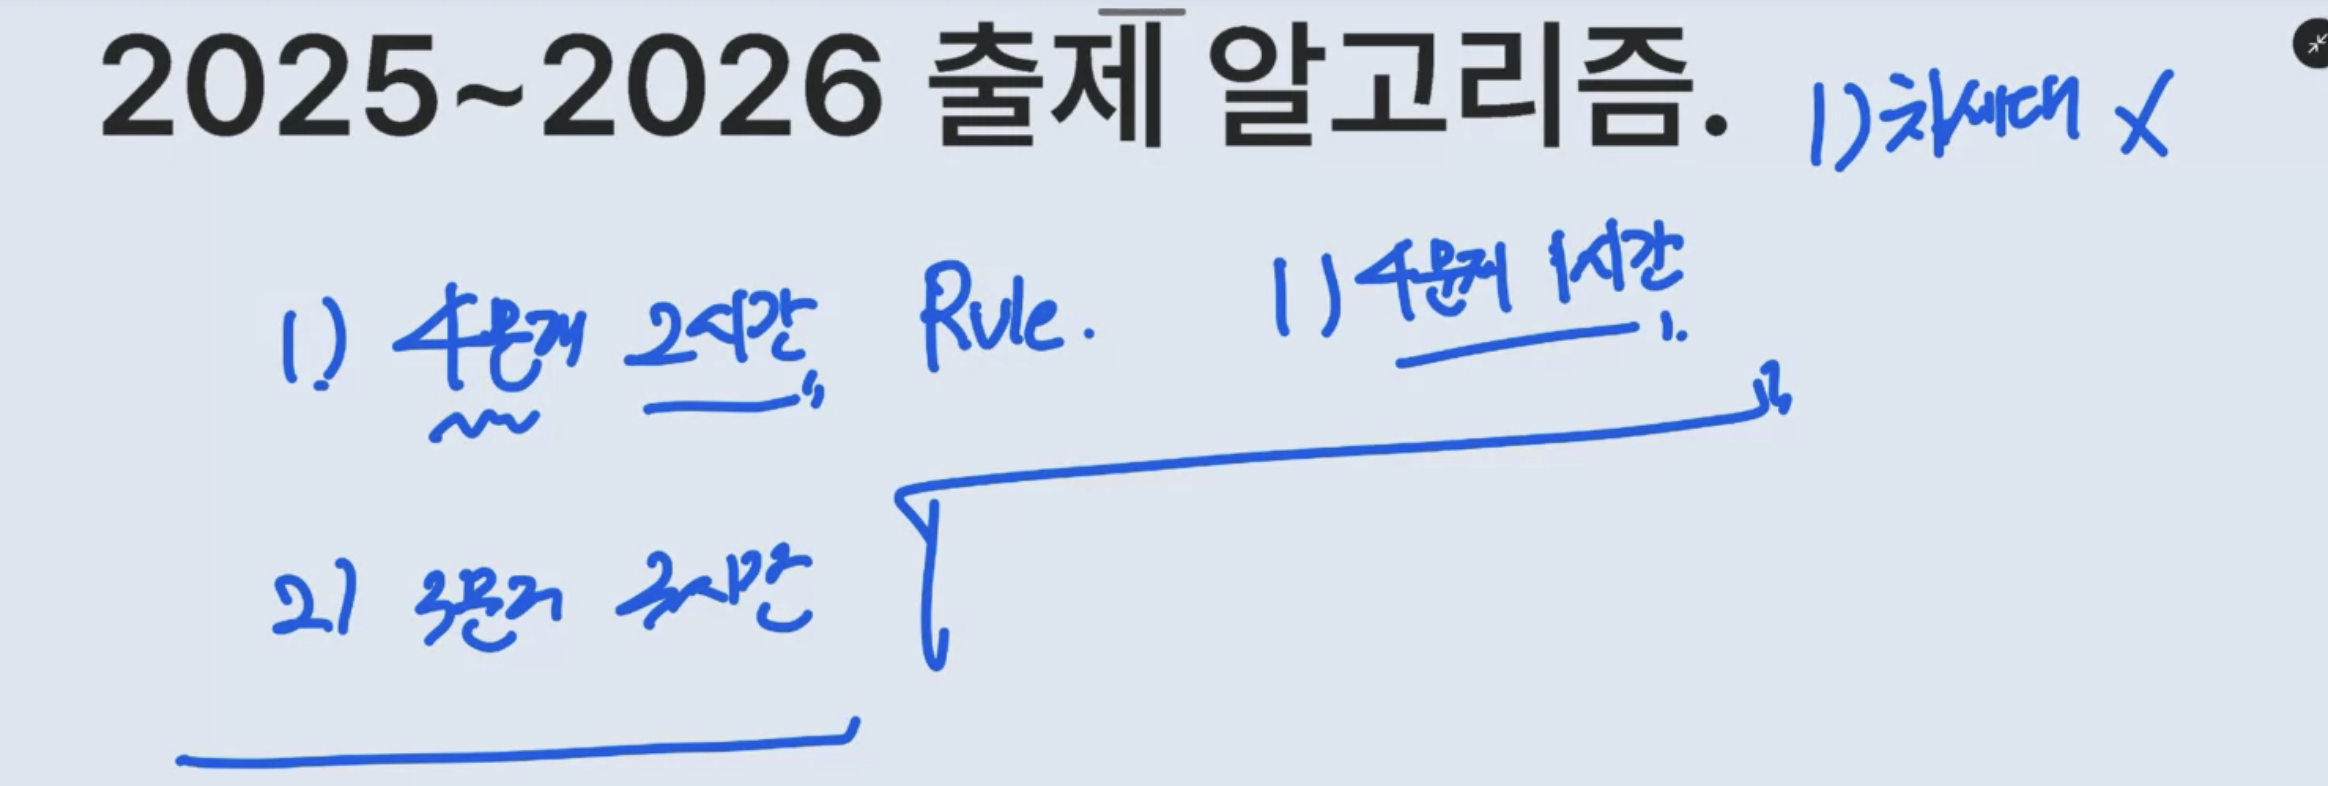 2025~2026 출제 알고리즘.
1) 차세대 X
1) 4문제 2시간 Rule. 1) 4문제 1시간
2) 3문제 3시간